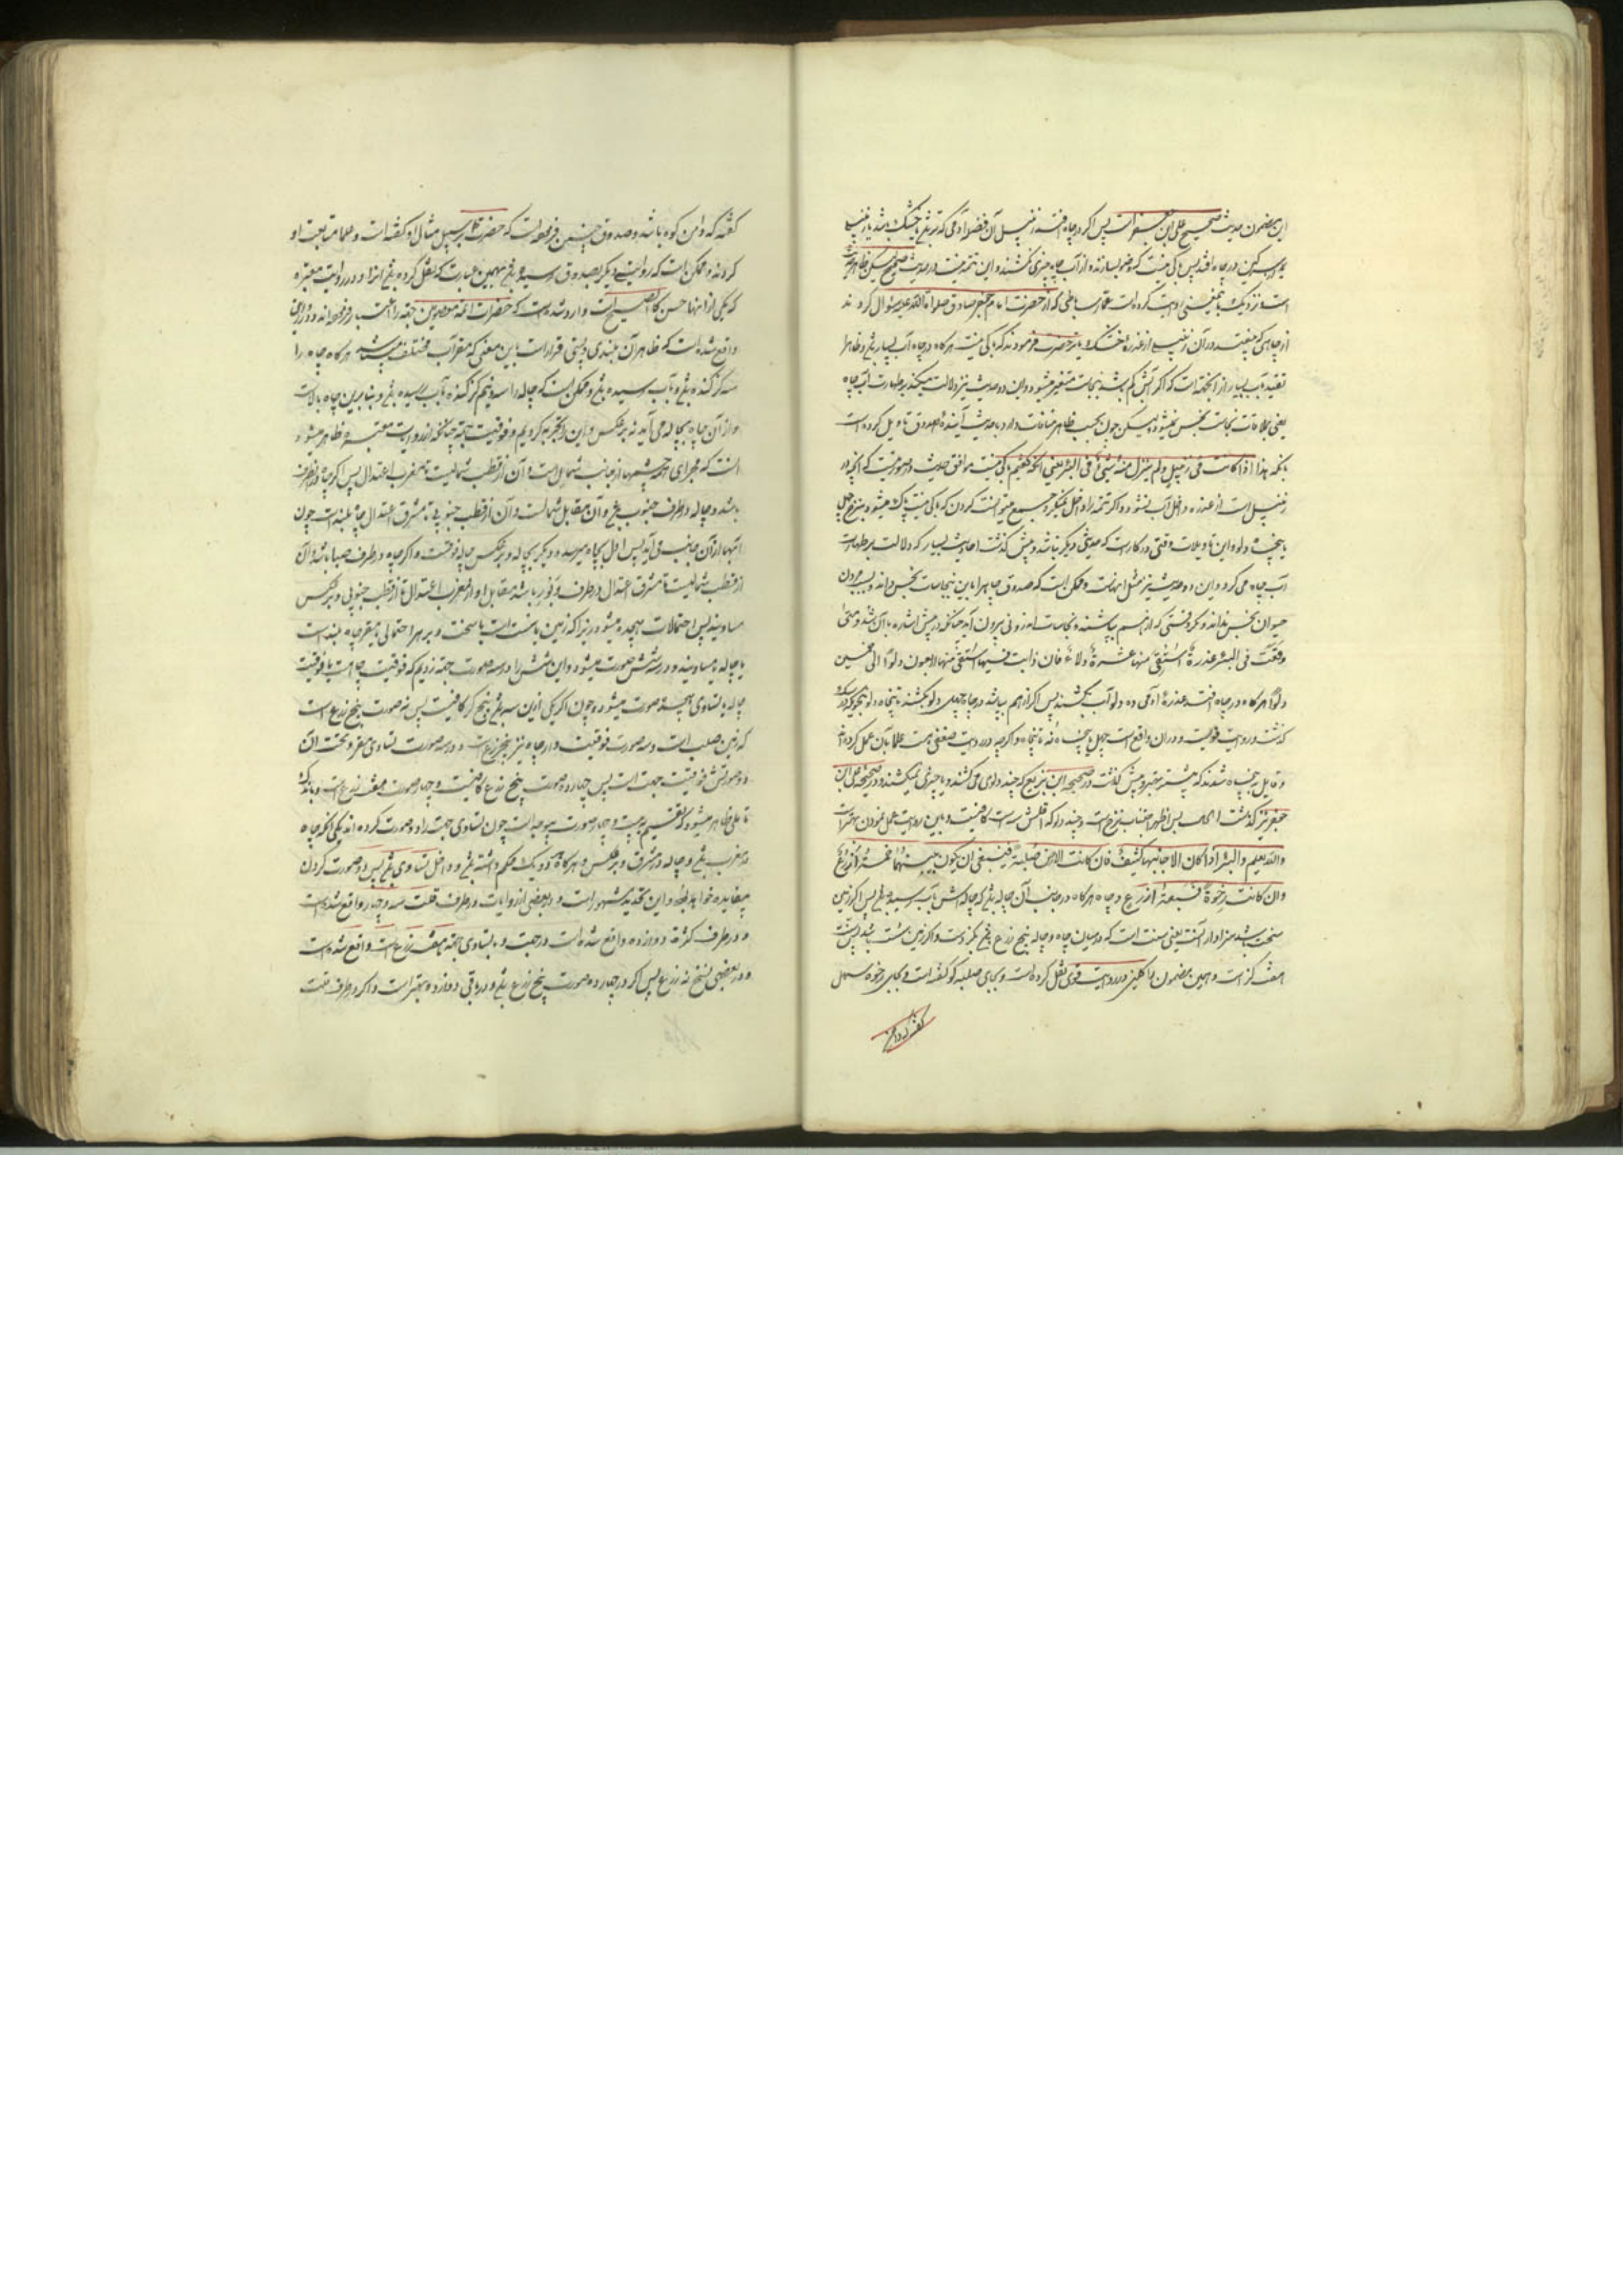 این مضمون حدیث صحیح علی بن جعفر است پس اگر در چاه افتد زنبیل آن فضله آدمی که تر باشد یا خشک باشد یا زنبیل
سرگین در چاه افتد پس باکی نیست که وضو بسازند از آب چاه و چیزی نکشند و این تتمه نیست در حدیث صحیح لیکن ظاهر
است و نزدیک باین شیخ روایت کرده است عمار ساباطی که از حضرت امام جعفر صادق صلوات الله علیه سؤال کردند
از چاهی که بیفتد در آن زنبیلی از عذره خشک یا تر حضرت فرمودند که باکی نیست هرگاه در چاه آب بسیار باشد و ظاهرا
تقیید بآب بسیار از آنجهت است که اگر آبش کم باشد بنجاست متغیر میشود و این دو حدیث نیز دلالت میکند بر طهارت آب چاه
یعنی بملاقات نجاست نجس نمیشود لیکن چون بحسب ظاهر منافات دارد با حدیث آینده صدوق تاویل کرده است
بآنکه هذا اذا کانت فی زنبیل و لم ینزل منه شیء فی البئر یعنی آنکه گفتیم باکی نیست موافق حدیث در صورتیست که آنچه در
زنبیل است از عذره داخل آب نشود و اگر تتمه را داخل جمیع میتوانست کردن که باکی نیست پاک میشود بنزح چهل
یا پنجاه دلو و این تاویلات وقتی در کار است که معارض دیگر نباشد و پیش گذشت احادیث بسیار که دلالت بر طهارت
آب چاه میکرد و این دو حدیث نیز مثل آنهاست و ممکن است که صدوق چاه را باین نجاسات نجس داند و بمردن
حیوان نجس نداند مگر وقتی که از هم بپاشند و نجاسات از او بیرون آید چنانکه در پیش اشاره بآن شد و متی
وقعت فی البئر عذرة استقی منها عشرة دلاء فان ذابت فیها استقی منها اربعون دلوا الی خمسین
دلوا هرگاه در چاه افتد عذره آدمی ده دلو آب بکشند پس اگر از هم بپاشد در چاه چهل دلو بکشند تا پنجاه دلو
گذشت در روایت و در آن واقع است چهل یا پنجاه نه تا پنجاه و اگر چه در روایت ضعفی هست علما بآن عمل کرده‌اند
و قایل به پنجاه شدند که پیشتر و پیش گذشت در صحیحه ابن بزیع که چند دلوی می‌کشند و یا چیزی نمیکشند و در صحیحه علی بن
جعفر نیز گذشت پس اظهر استحباب نزح است و چند دلو که اقلش سه است کافیست و باین روایت عمل نمودن بهتر است
والله یعلم و البئر اذا کان الی جانبها کنیف فان کانت الارض صلبة فینبغی ان یکون بینهما خمسة اذرع
و ان کانت رخوة فسبعة اذرع و چاه هرگاه در جانب آن چاله باشد که چاله‌اش بآب رسیده باشد پس اگر زمین
سخت باشد سزاوار آنست یعنی سنت است که در میان چاه و چاله پنج ذرع باشد که گز دست و اگر زمین سست باشد پس سنت
هفت گز است و همین مضمون را کلینی در روایت قوی نقل کرده است و بجای صلبه کوه گفته است و بجای رخوه سهل
گفته که دامن کوه باشد و صدوق چنین فرموده است که حضرت بر سبیل مثال او گفته است و علما متابعت او
کرده‌اند و ممکن است که روایتی دیگر بصدوق رسیده باشد بهمین عبارت که نقل کرده باشد انرا و در روایت معتبره
که یکی از آنها حسن کالصحیح است وارد شده است که حضرات ائمه معصومین جهة را اعتبار فرموده‌اند و در روایتی
واقع شده است که ظاهر آن بلندی و پستی قرار است باین معنی که مقر آب مختلف میباشد هرگاه چاه را
سه گز کنده باشد و بآب رسیده باشد و ممکن است که چاله را سه و نیم گز کنده بآب رسیده باشد و بنا برین چاه بالاست
و از آن چاه بچاله می‌آید نه بر عکس و این را تجربه کردیم و فوقیت جهة چنانکه از روایت معتبره ظاهر میشود
آنست که مجرای همه چشمها از جانب شمال است و آن از قطب شمالیست تا مغرب اعتدال پس اگر چاه در آنطرف
باشد و چاله در طرف جنوب باشد و آن مقابل شمال است و آن از قطب جنوبی تا مشرق اعتدال چاه بلند است چون
آبها از آن جانب می‌آید پس اول بچاه میرسد و دیگر بچاله و بر عکس چاله فوقست و اگر چاه در طرف صبا باشد و آن
از قطب شمالیست تا مشرق اعتدال در طرف دبور باشد مقابل او از مغرب اعتدال تا قطب جنوبی و بر عکس
مساویند پس احتمالات هجده میشود زیرا که زمین یا سست است یا سخت و بر هر احتمالی یا مقر چاه بلند است
یا چاله یا مساویند و در سه شش صورت میشود و این شش را در سه صورت جهة زدیم که فوقیت چاه است یا فوقیت
چاله یا تساوی هجده صورت میشود و چون اگر یکی ازین سه باشد پنج گز کافیست پس نه صورت پنج ذرع است
که زمین صلب است و سه صورت فوقیت قرار چاه نیز پنج ذرع است و در سه صورت تساوی مقر و تحت آن
دو صورتش فوقیت جهت است پس چهارده صورت پنج ذرع کافیست و چهار صورت هفت ذرع است و باندک
تاملی ظاهر میشود که تقسیم به بیست و چهار صورت بیوجه است چون تساوی جهت را دو صورت کرده‌اند یکی آنکه چاه
در مغرب باشد و چاله در مشرق و بر عکس و هرگاه دو یک حکم داشته باشد و داخل تساوی باشد پس دو صورت کردن
بیفایده خواهد بود و این تحدید مشهور است و در بعضی از روایات در طرف قلت سه و چهار واقع شده است
و در طرف کثرت دوازده واقع شده است در جهت و با تساوی جهة هفت ذرع است واقع شده است
و در بعضی نسخ نه ذرع پس اگر در چهارده صورت پنج ذرع باشد و در باقی دوازده بهتر است و اگر در طرف قلت